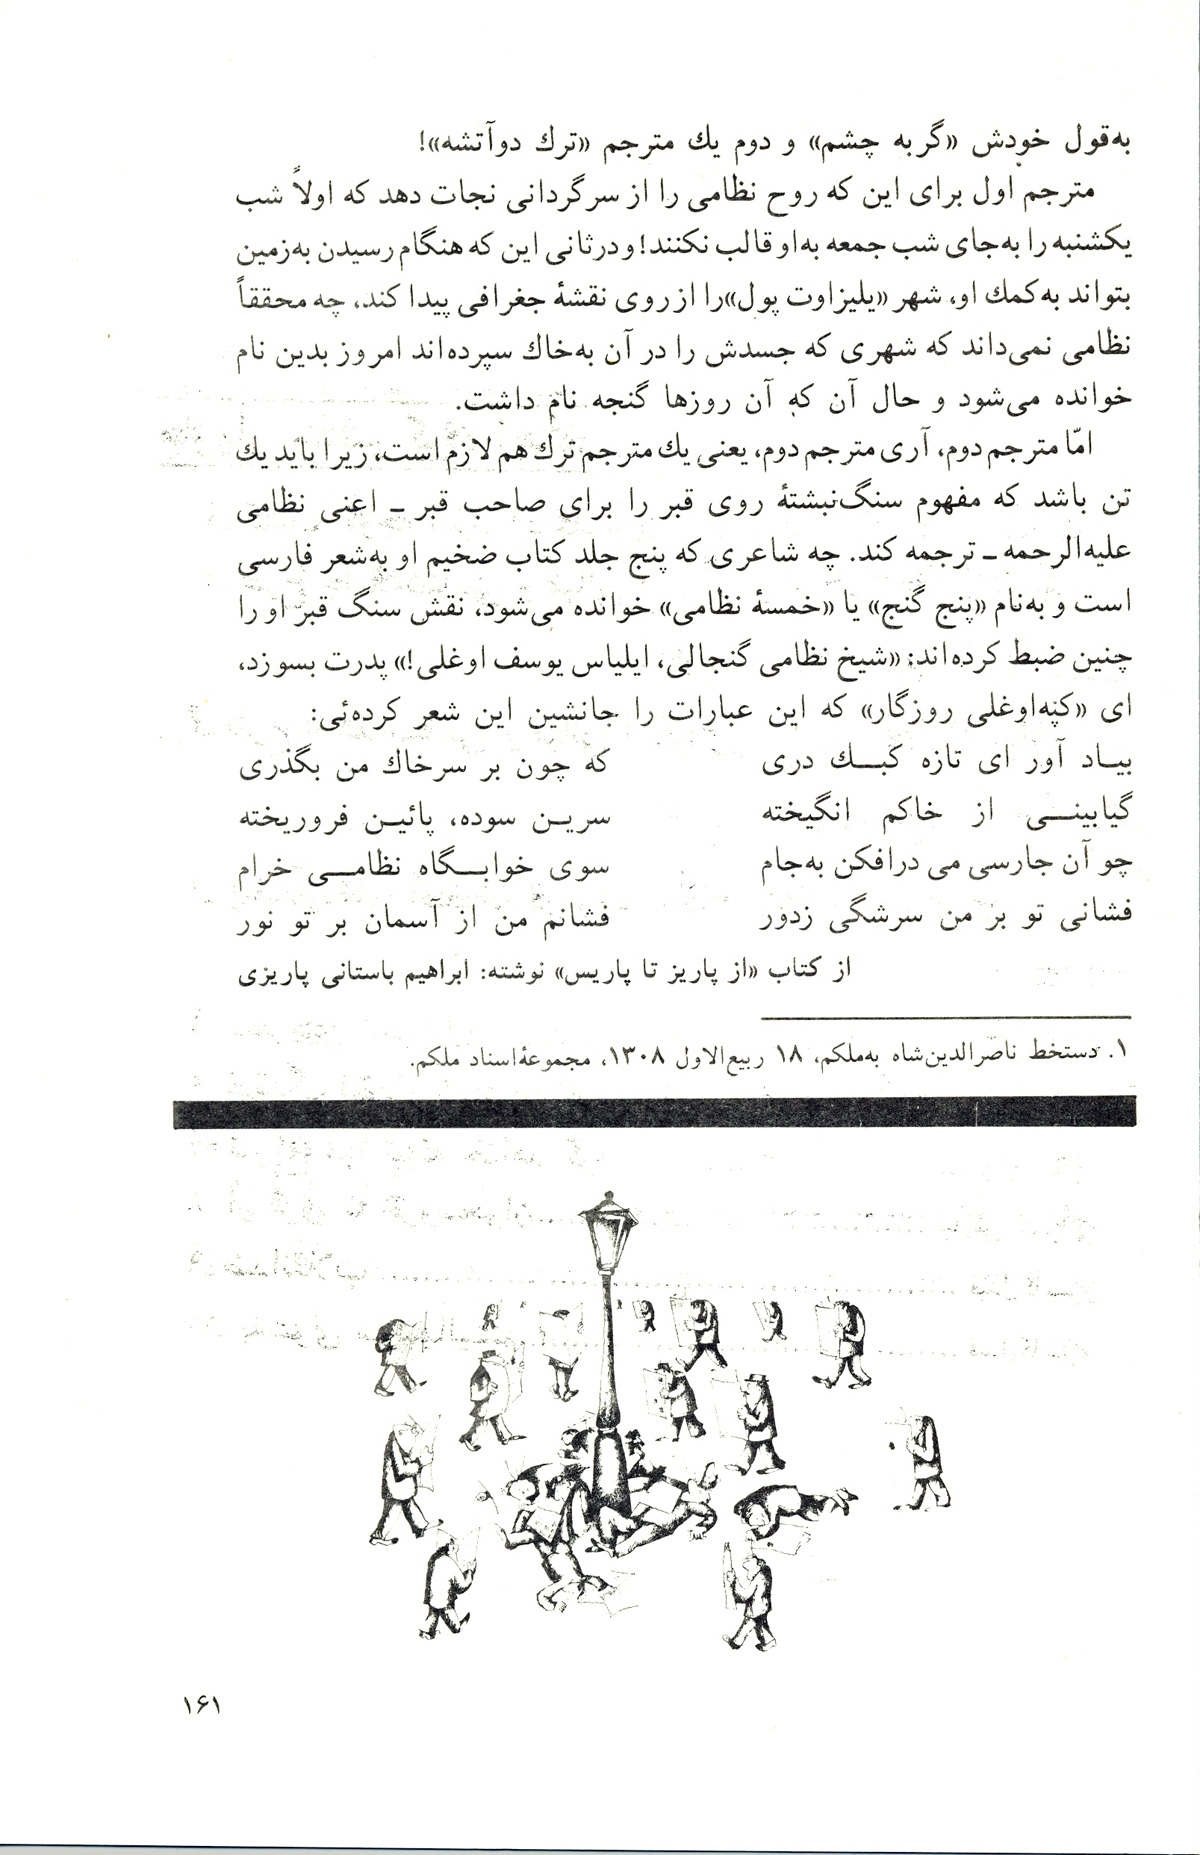 به‌قول خودش «گربه چشم» و دوم یك مترجم «ترك دوآتشه»!
مترجم اول برای این که روح نظامی را از سرگردانی نجات دهد که اولاً شب
یکشنبه را به‌جای شب جمعه به‌او قالب نکنند! و درثانی این که هنگام رسیدن به‌زمین
بتواند به‌کمك او، شهر «یلیزاوت پول» را از روی نقشهٔ جغرافی پیدا کند، چه محققاً
نظامی نمی‌داند که شهری که جسدش را در آن به‌خاك سپرده‌اند امروز بدین نام
خوانده می‌شود و حال آن که آن روزها گنجه نام داشت.
امّا مترجم دوم، آری مترجم دوم، یعنی یك مترجم ترك هم لازم است، زیرا باید یك
تن باشد که مفهوم سنگ‌نبشتهٔ روی قبر را برای صاحب قبر ـ اعنی نظامی
علیه‌الرحمه ـ ترجمه کند. چه شاعری که پنج جلد کتاب ضخیم او به‌شعر فارسی
است و به‌نام «پنج گنج» یا «خمسهٔ نظامی» خوانده می‌شود، نقش سنگ قبر او را
چنین ضبط کرده‌اند: «شیخ نظامی گنجالی، ایلیاس یوسف اوغلی!» پدرت بسوزد،
ای «کپه‌اوغلی روزگار» که این عبارات را جانشین این شعر کرده‌ئی:
بیـاد آور ای تازه کبـك دری که چون بر سرخاك من بگذری
گیابینـی از خاکم انگیخته سریـن سوده، پائیـن فروریخته
چو آن جارسی می درافکن به‌جام سوی خوابـگاه نظامـی خرام
فشانی تو بر من سرشگی زدور فشانم من از آسمان بر تو نور
از کتاب «از پاریز تا پاریس» نوشته: ابراهیم باستانی پاریزی
۱. دستخط ناصرالدین‌شاه به‌ملکم، ۱۸ ربیع‌الاول ۱۳۰۸، مجموعهٔ‌اسناد ملکم.
۱۶۱